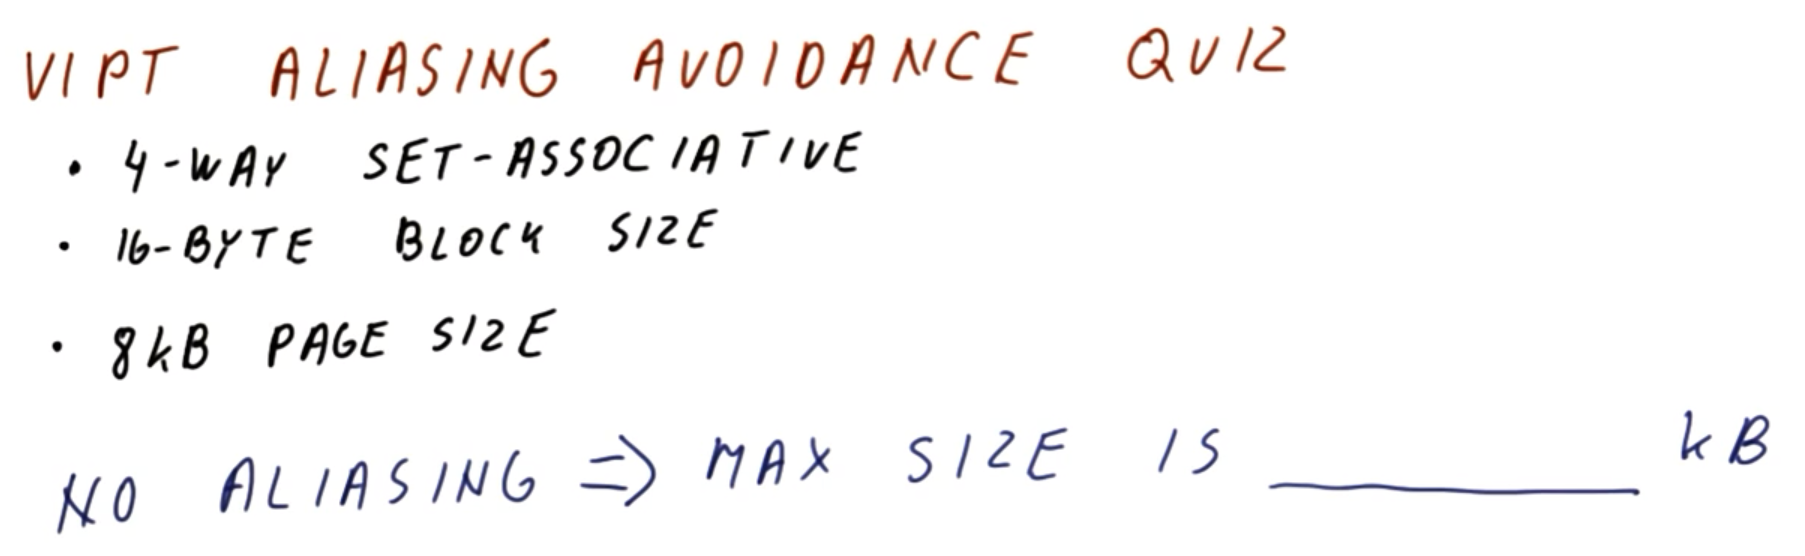 VIPT ALIASING AVOIDANCE QUIZ
• 4-WAY SET-ASSOCIATIVE
• 16-BYTE BLOCK SIZE
• 8kB PAGE SIZE
NO ALIASING => MAX SIZE IS ________ kB